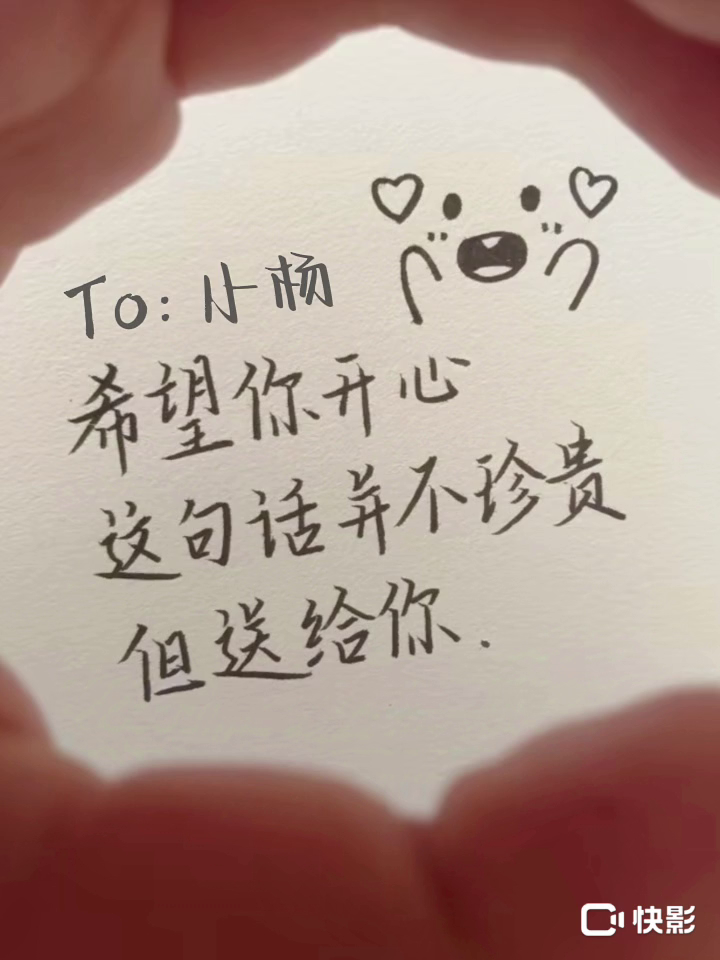 To: 小杨
希望你开心
这句话并不珍贵
但送给你.
快影